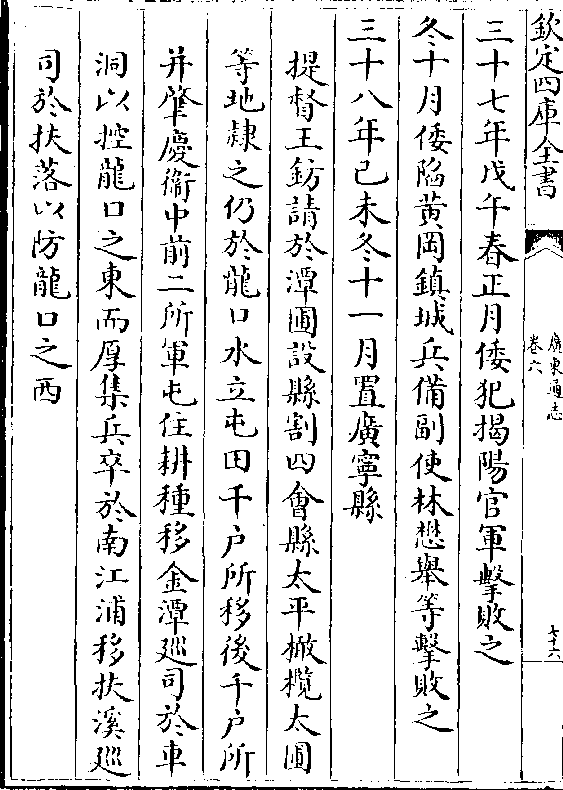 欽定四庫全書
廣東通志
卷六
七十六
三十七年戊午春正月倭犯揭陽官軍擊敗之
冬十月倭陷黃岡鎮城兵備副使林懋舉等擊敗之
三十八年己未冬十一月置廣寧縣
提督王鈁請於潭圃設縣割四會縣太平橄欖太圃
等地隸之仍於龍口水立屯田千戶所移後千戶所
并肇慶衛中前二所軍屯住耕種移金潭廵司於車
洞以控龍口之東而厚集兵卒於南江浦移扶溪廵
司於扶落以防龍口之西